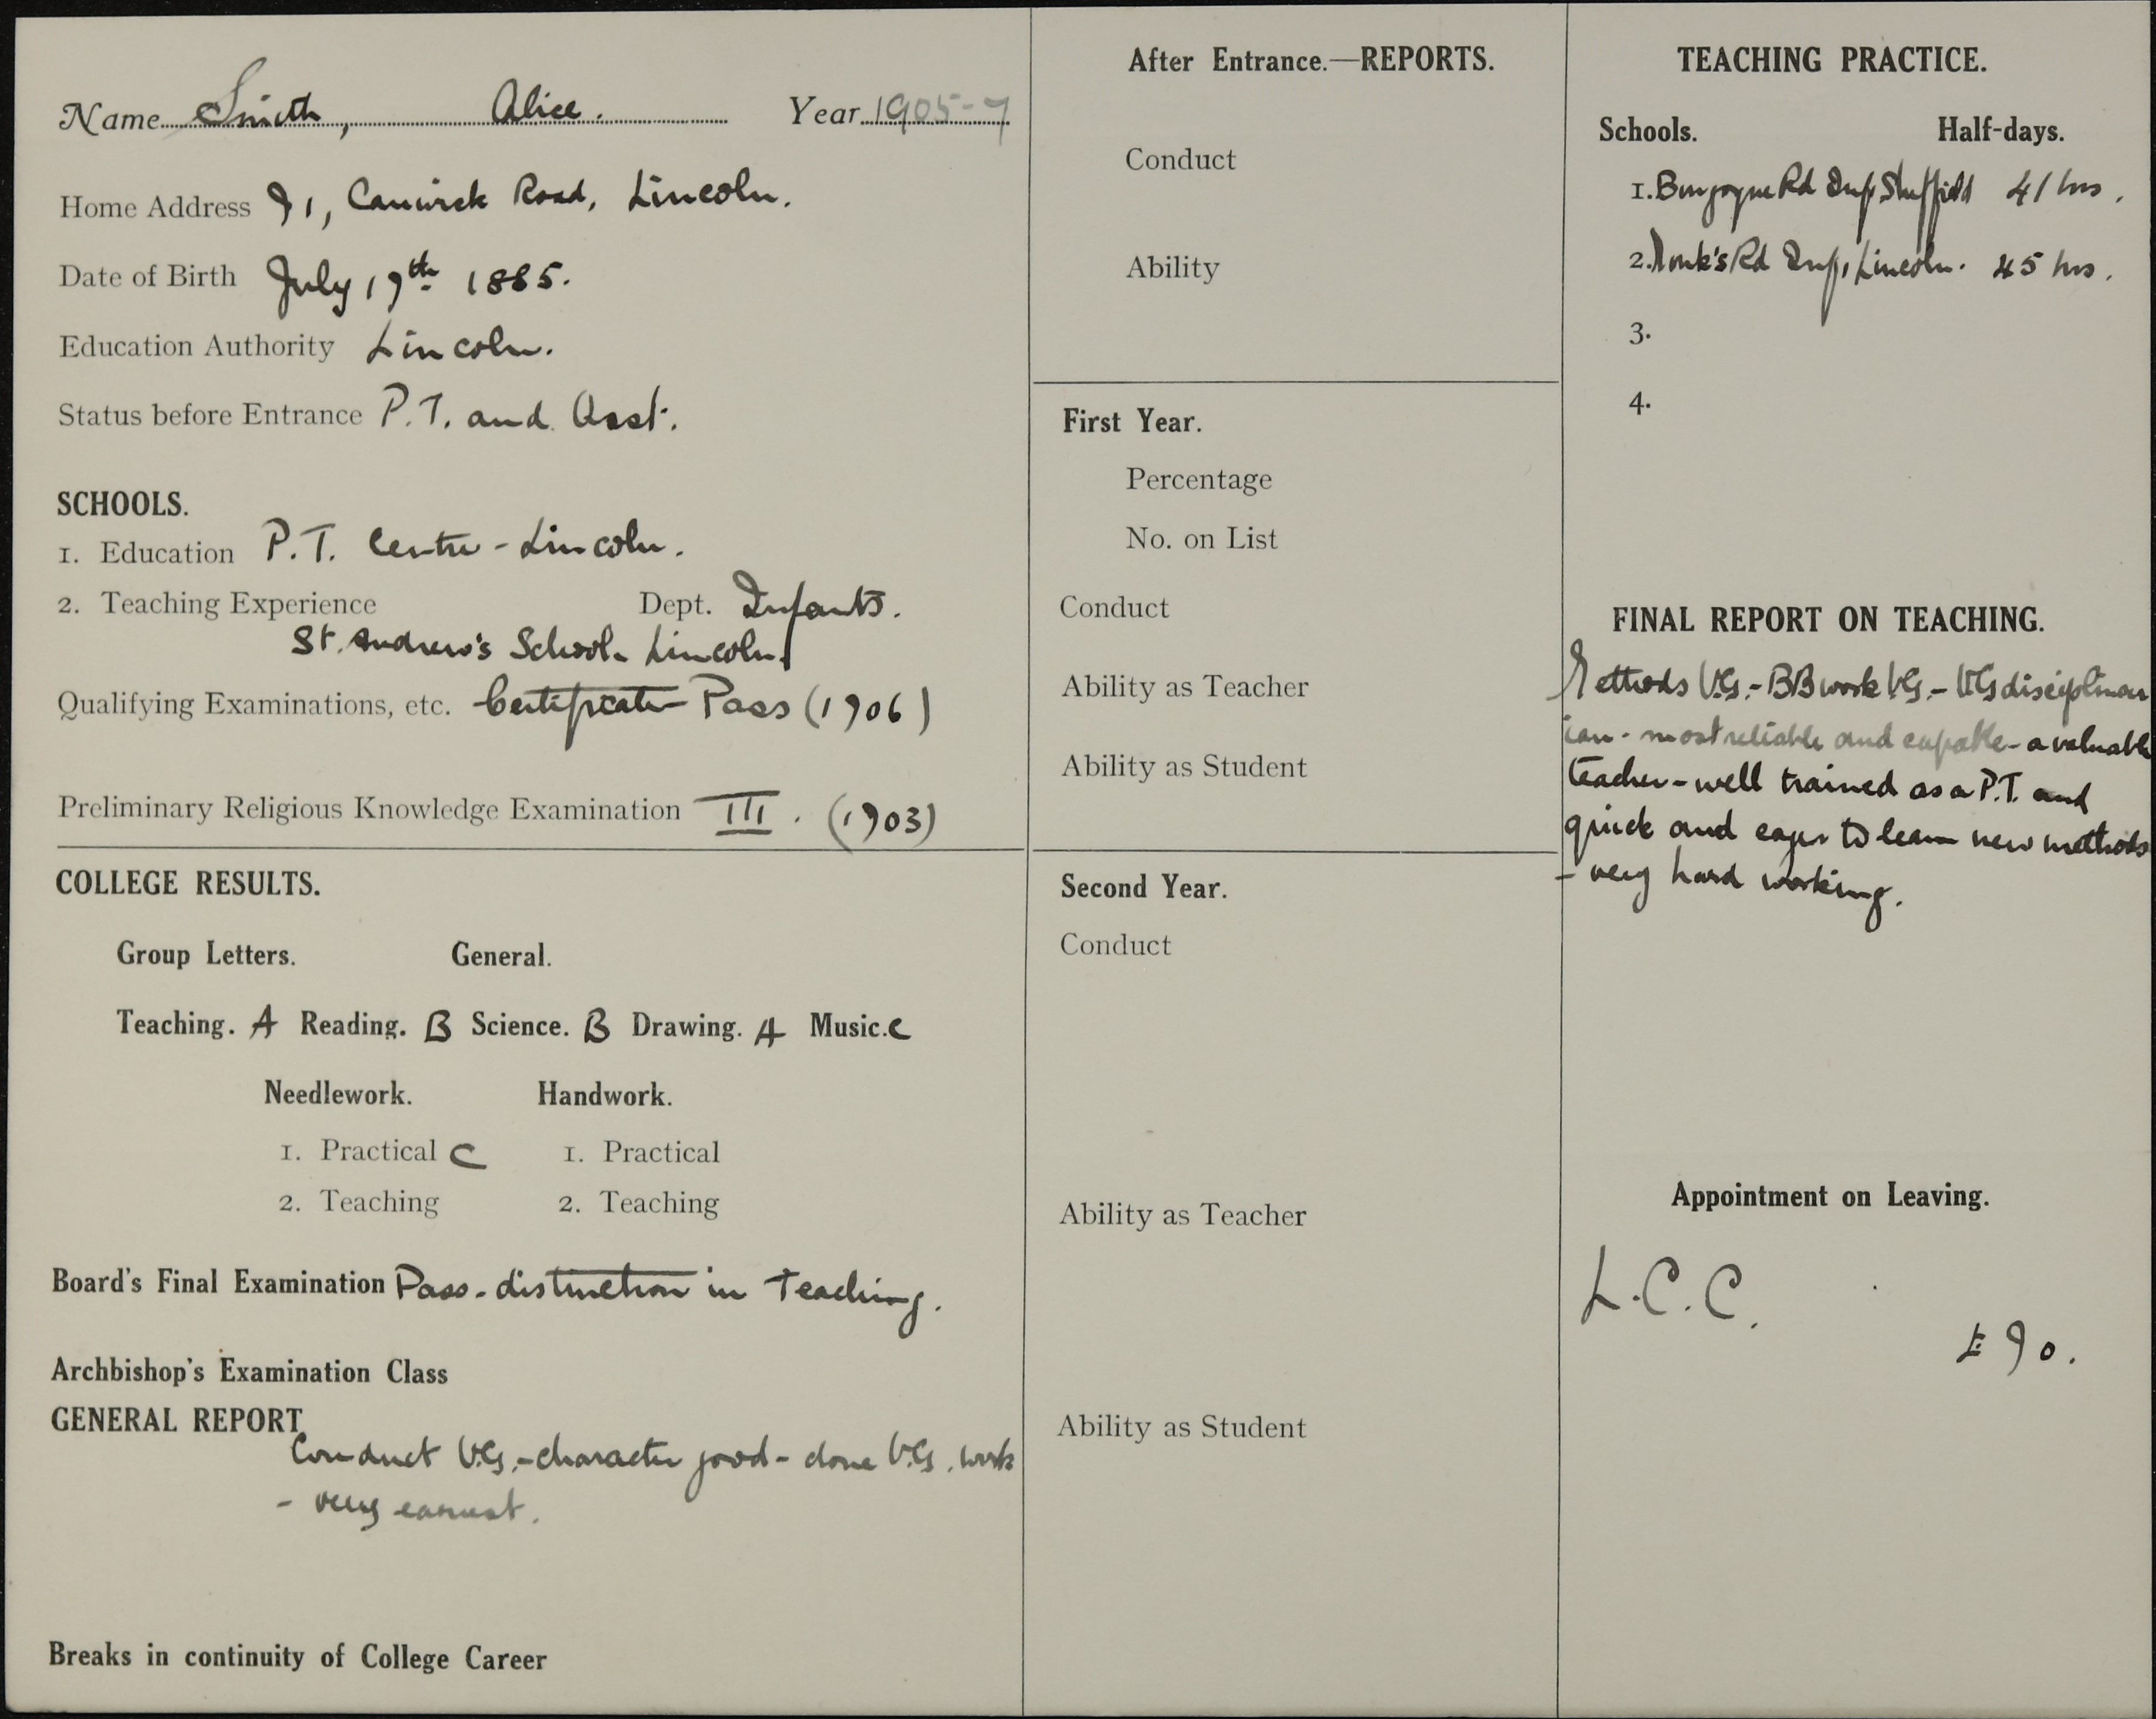 Name Smith, Alice. Year 1905-7
Home Address 91, Canwick Road, Lincoln.
Date of Birth July 19th 1885.
Education Authority Lincoln.
Status before Entrance P.T. and Asst.
SCHOOLS.
1. Education P.T. Centre - Lincoln.
2. Teaching Experience Dept. Infants.
St. Andrew's School. Lincoln.
Qualifying Examinations, etc. Certificate Pass (1906)
Preliminary Religious Knowledge Examination III. (1903)
COLLEGE RESULTS.
Group Letters. General.
Teaching. A Reading. B Science. B Drawing. A Music. C
Needlework. Handwork.
1. Practical C 1. Practical
2. Teaching 2. Teaching
Board's Final Examination Pass. distinction in Teaching.
Archbishop's Examination Class
GENERAL REPORT
Conduct V.G. - character good - done V.G. work
- very earnest.
Breaks in continuity of College Career
After Entrance.—REPORTS.
Conduct
Ability
First Year.
Percentage
No. on List
Conduct
Ability as Teacher
Ability as Student
Second Year.
Conduct
Ability as Teacher
Ability as Student
TEACHING PRACTICE.
Schools. Half-days.
1. Burgoyne Rd Inf. Sheffield 41 hrs.
2. Monk's Rd Inf. Lincoln. 45 hrs.
3.
4.
FINAL REPORT ON TEACHING.
Methods V.G. - BB work V.G. - V.G. disciplinar
ian - most reliable and capable - a valuable
teacher - well trained as a P.T. and
quick and eager to learn new methods
- very hard working.
Appointment on Leaving.
L.C.C.
£90.